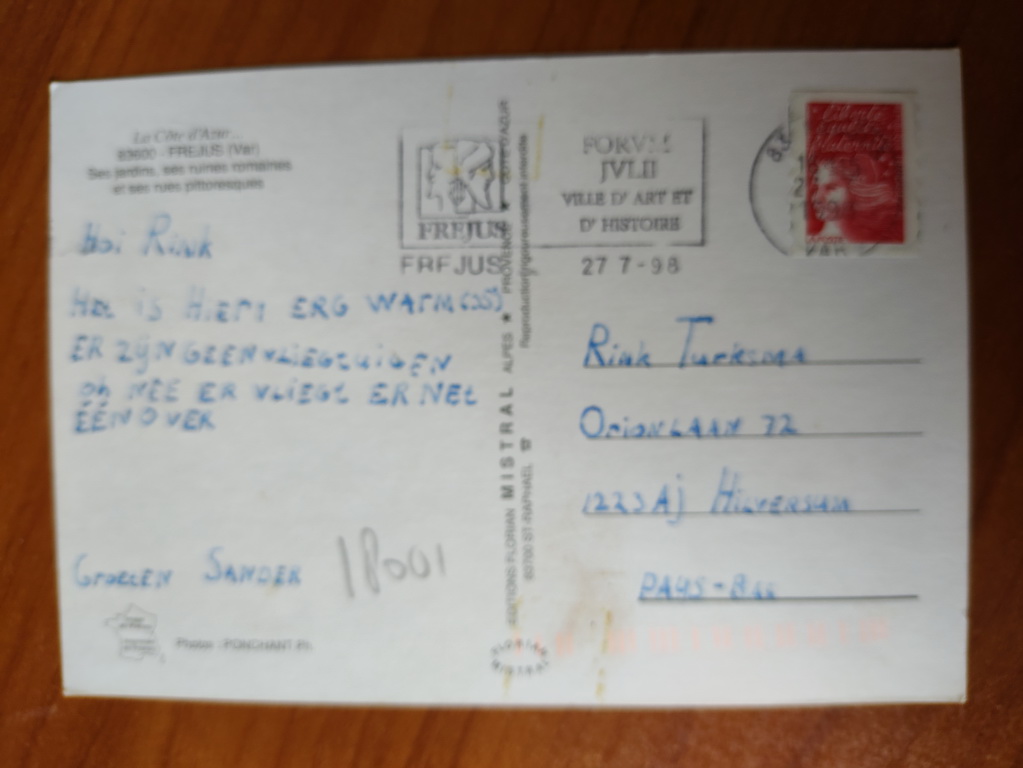 La Côte d'Azur...
83600 - FREJUS (Var)
Ses jardins, ses ruines romaines
et ses rues pittoresques
Hoi Rink
Het is HIER ERG WARM (35)
ER ZIJN GEEN VLIEGTUIGEN
oh NEE ER VLIEGT ER NET
EEN OVER
GROETEN SANDER
18001
Photo : PONCHANT Ph.
EDITIONS FLORIAN MISTRAL ALPES ★ PROVENCE ★ COTE D'AZUR
83700 ST-RAPHAEL ☎ Reproduction rigoureusement interdite
FLORIAN
MISTRAL
FREJUS
FREJUS
FORVM
JVLII
VILLE D'ART ET
D'HISTOIRE
27 7-98
Liberté
égalité
fraternité
VAR
Rink Turksma
Orionlaan 72
1223 Aj Hilversum
PAYS-Bas